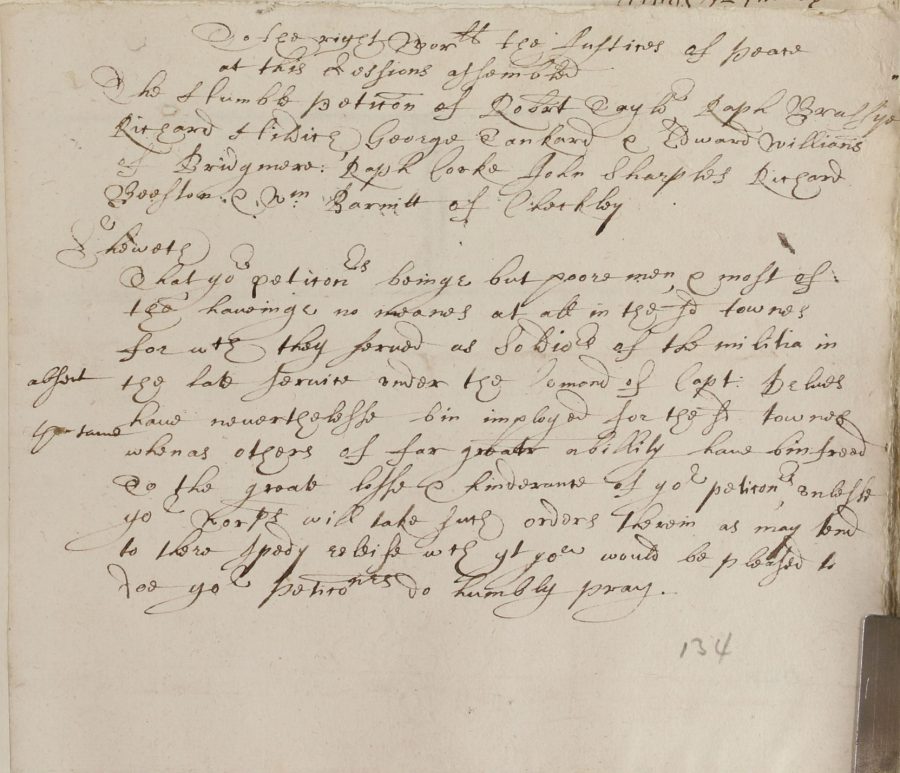 To the right Worpll the Justices of peace
at this Sessions assembled
The Humble peticon of Robrt Taylor Raph Brassye
Richard Hiditch George Tankard & Edward Williams
of Bridgmere: Raph Cooke John Sharples Richard
Beeston & Wm Barnitt of Checkley
Sheweth
That yor peticonrs beinge but poore men & most of
the haveinge no meanes at all in the sd townes
for wch they served as Soldiors of the militia in
absent
the late service under the Comand of Capt: Delves
have neverthelesse bin imployed for the sd townes
whenas others of far greater abillity have bin freed
To the greate losse & hinderance of yor peticonrs unlesse
yor Worps will take such orders therein as may tend
to there spedy releise wch yt you would be pleased to
doe yor peticonrs do humbly pray.
134